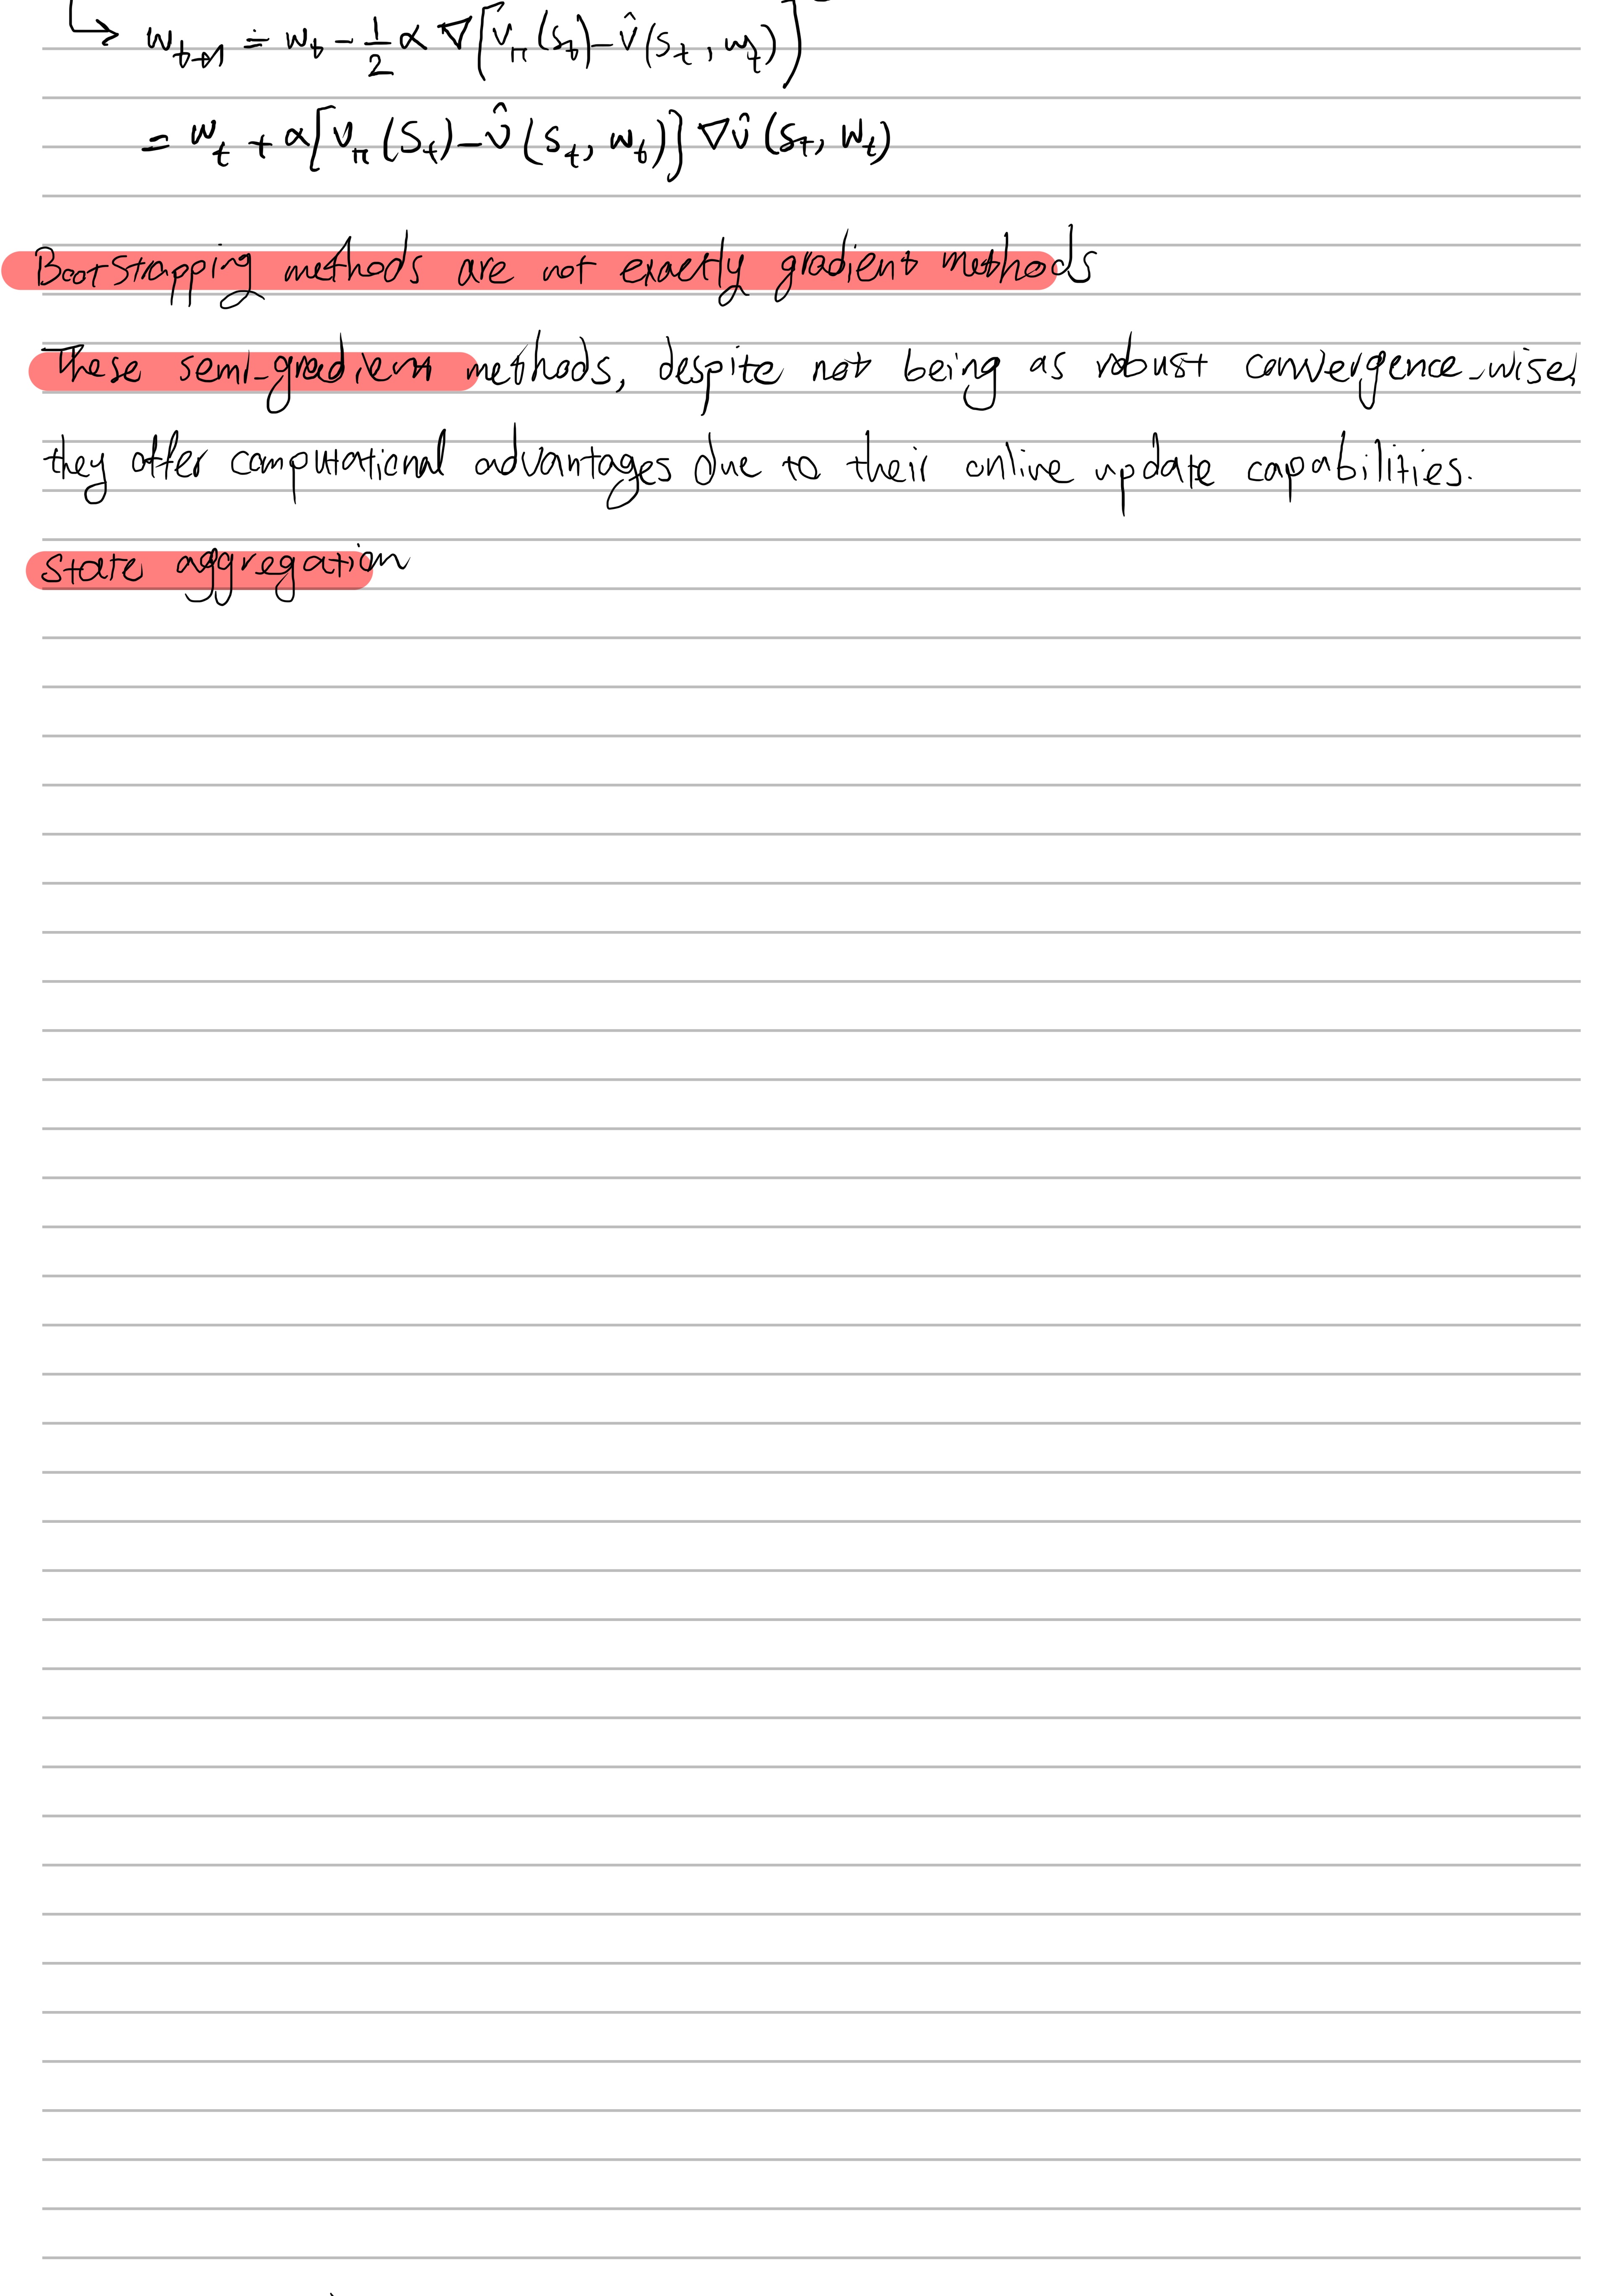 ↳ w_{t+1} ≐ w_t - 1/2 α ∇[v_π(S_t) - v̂(S_t, w_t)]²
= w_t + α[v_π(S_t) - v̂(S_t, w_t)] ∇v̂(S_t, w_t)
Bootstrapping methods are not exactly gradient methods
These semi-gradient methods, despite not being as robust convergence-wise,
they offer computational advantages due to their online update capabilities.
state aggregation